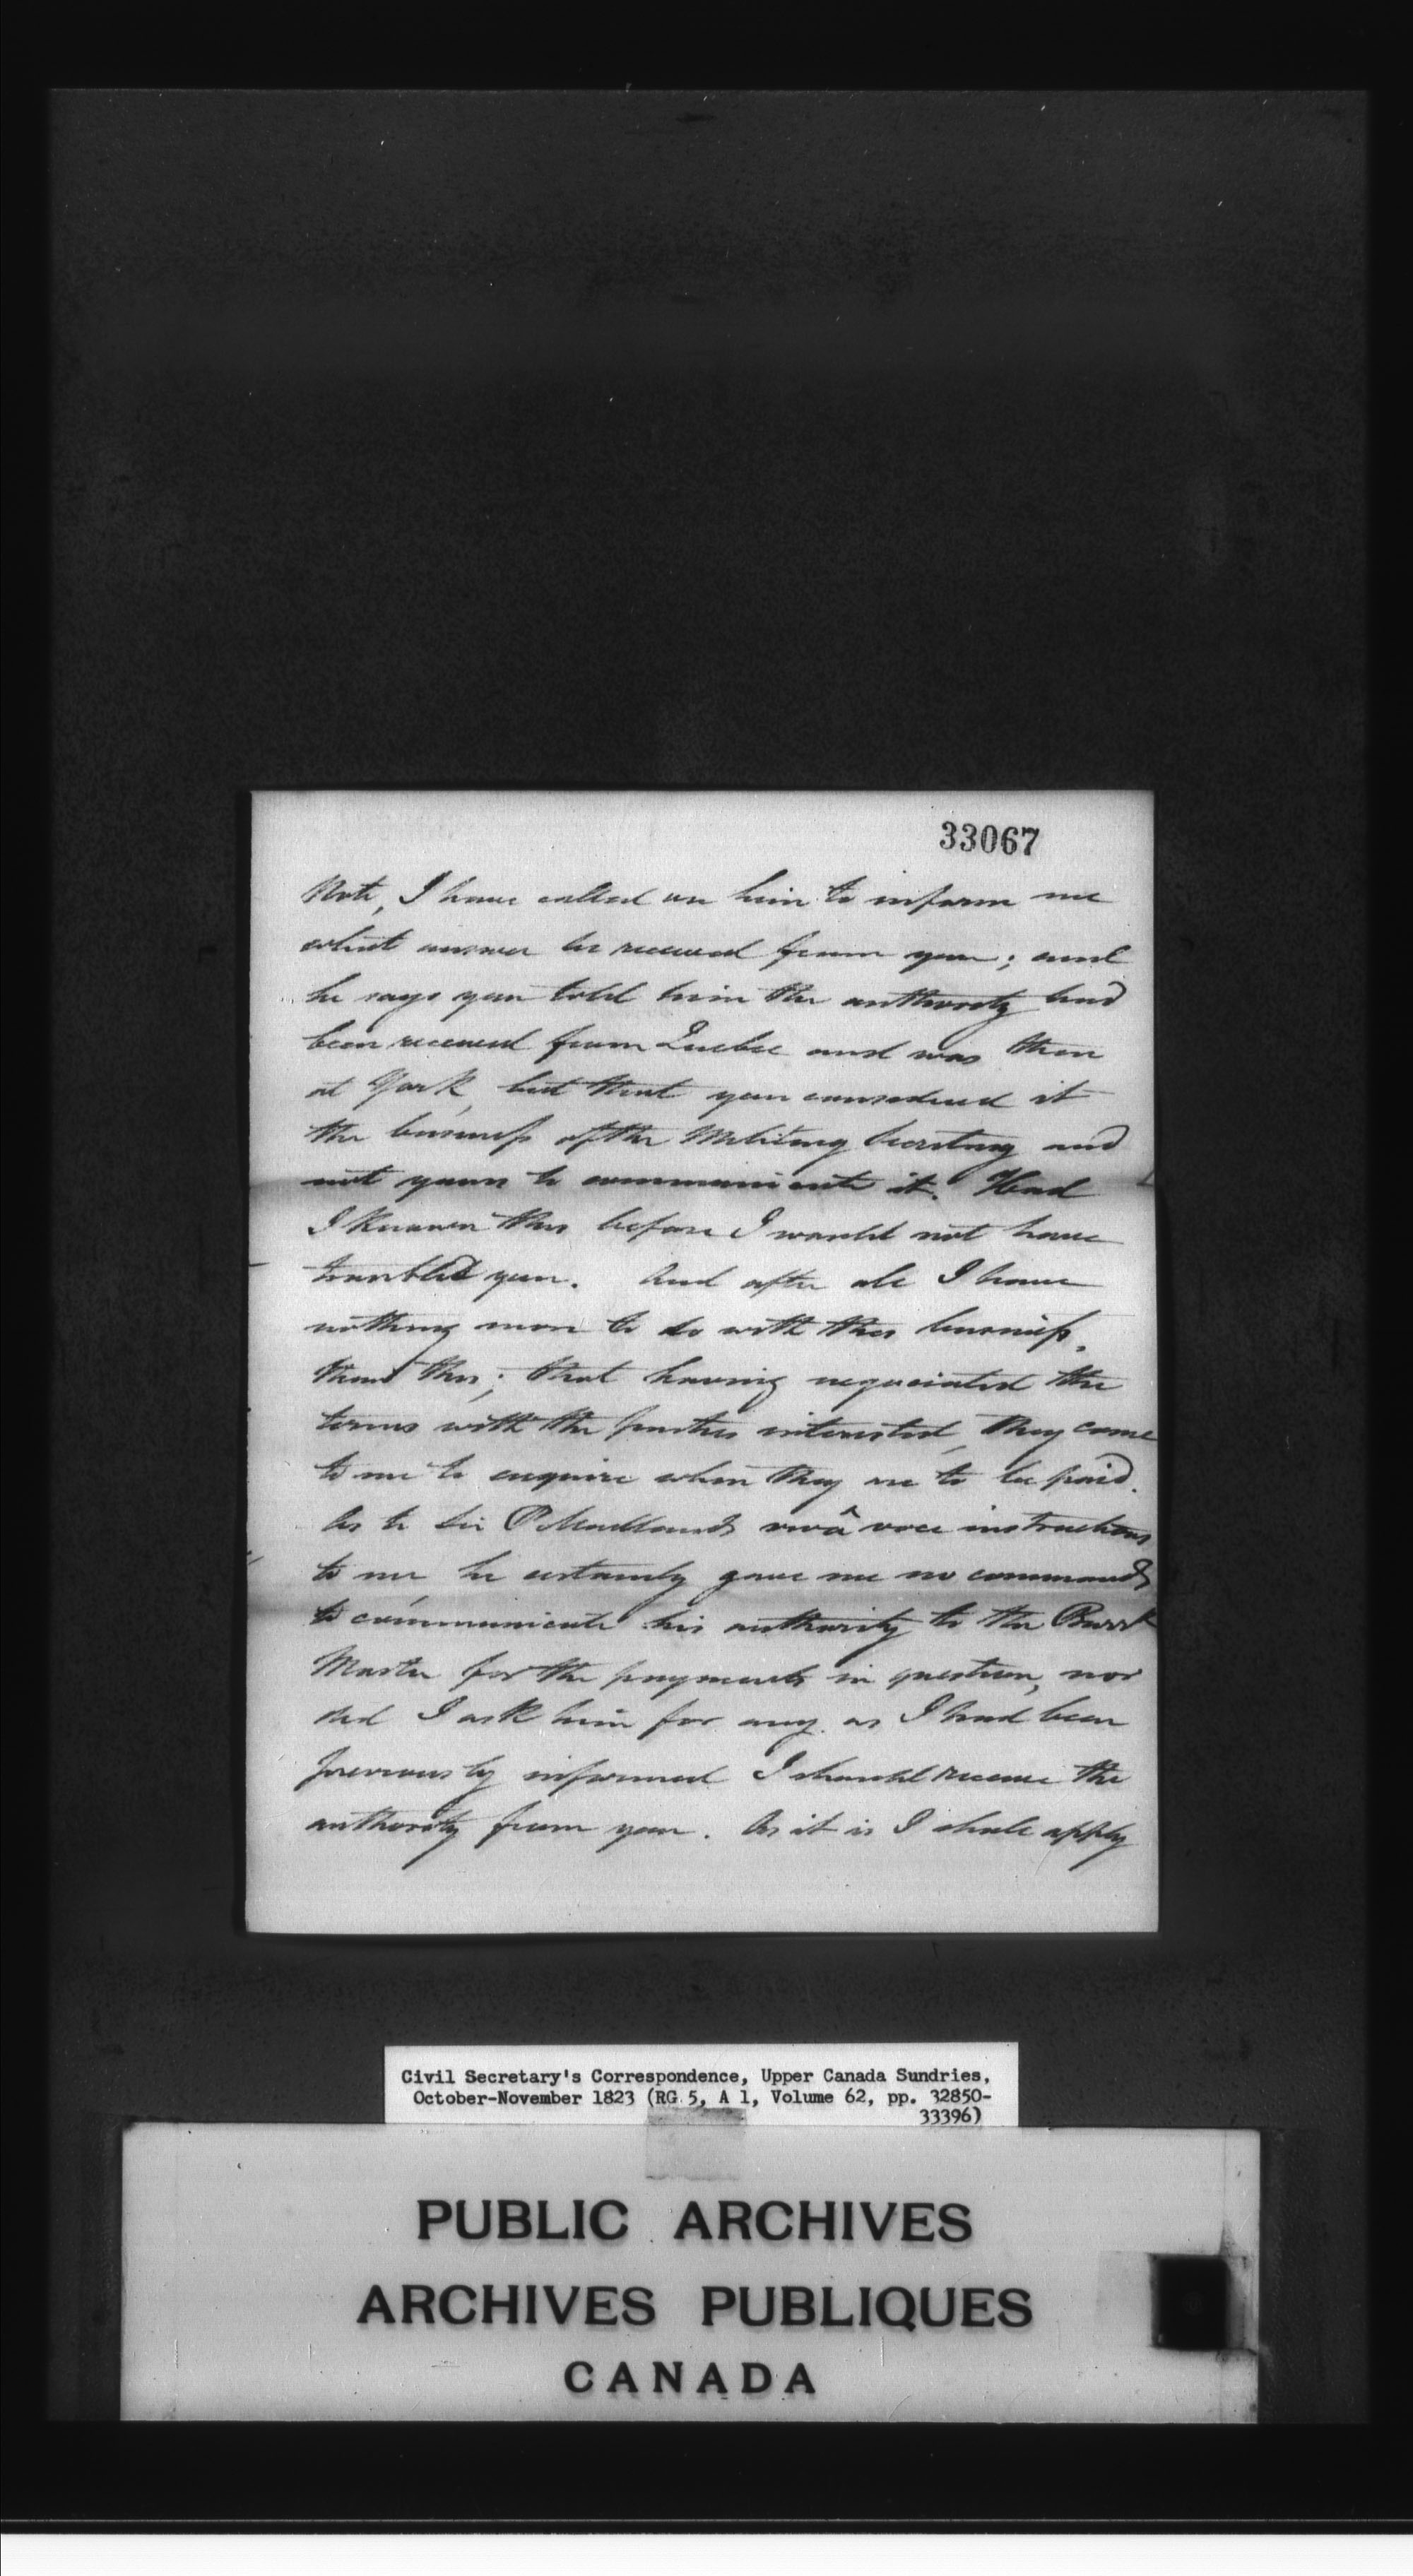 33067
Note, I have called on him to inform me
what answer he received from you; and
he says you told him the authority had
been received from Quebec and was then
at York, but that you considered it
the business of the Military Secretary and
not yours to communicate it. Had
I known this before I would not have
troubled you. And after all I have
nothing more to do with this business,
than this; that having negociated the
terms with the parties interested, they come
to me to enquire when they are to be paid.
As to Sir P Maitland's vivâ voce instructions
to me he certainly gave me no commands
to communicate his authority to the Barrk
Master for the payments in question, nor
did I ask him for any as I had been
previously informed I should receive the
authority from you. As it is I shall apply
Civil Secretary's Correspondence, Upper Canada Sundries,
October-November 1823 (RG 5, A 1, Volume 62, pp. 32850-
33396)
PUBLIC ARCHIVES
ARCHIVES PUBLIQUES
CANADA